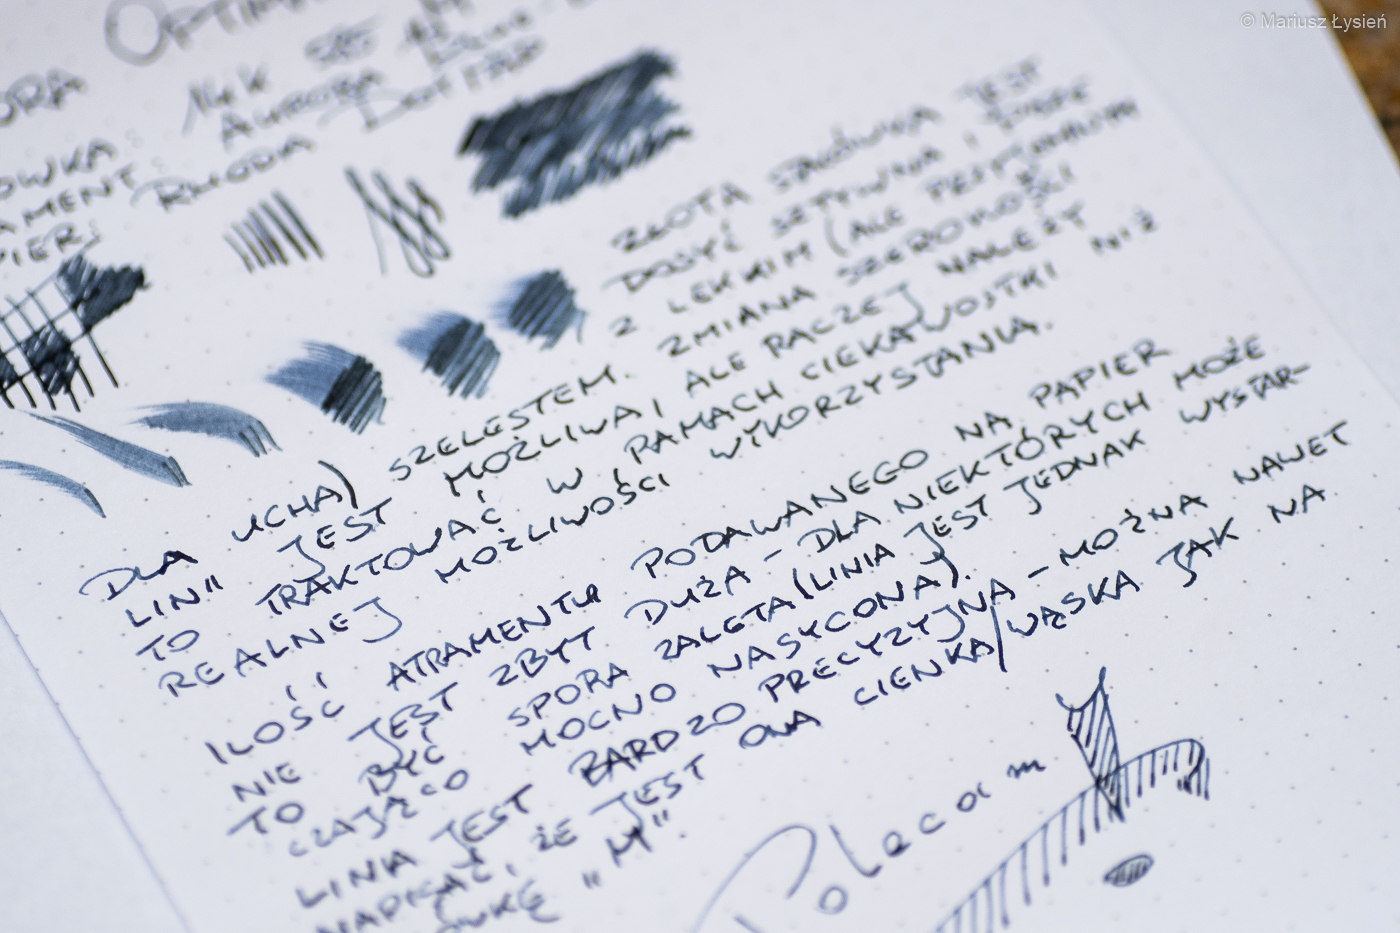 © Mariusz Łysień
OPTIMA
ORA
14K
AURORA
RHODIA DOT PAD
ÓWKA:
AMENT:
PIER:
ZŁOTA STALÓWKA JEST
DOSYĆ SZTYWNA I PISZE
Z LEKKIM (ALE PRZYJEMNYM
DLA UCHA) SZELESTEM. ZMIANA SZEROKOŚCI
LINII JEST MOŻLIWA, ALE RACZEJ NALEŻY
TO TRAKTOWAĆ W RAMACH CIEKAWOSTKI NIŻ
REALNEJ MOŻLIWOŚCI WYKORZYSTANIA.
ILOŚĆ ATRAMENTU PODAWANEGO NA PAPIER
NIE JEST ZBYT DUŻA - DLA NIEKTÓRYCH MOŻE
TO BYĆ SPORA ZALETA (LINIA JEST JEDNAK WYSTAR-
CZAJĄCO MOCNO NASYCONA).
LINIA JEST BARDZO PRECYZYJNA - MOŻNA NAWET
NAPISAĆ, ŻE JEST ONA CIENKA/WĄSKA JAK NA
ÓWKĘ „M".
Polecam